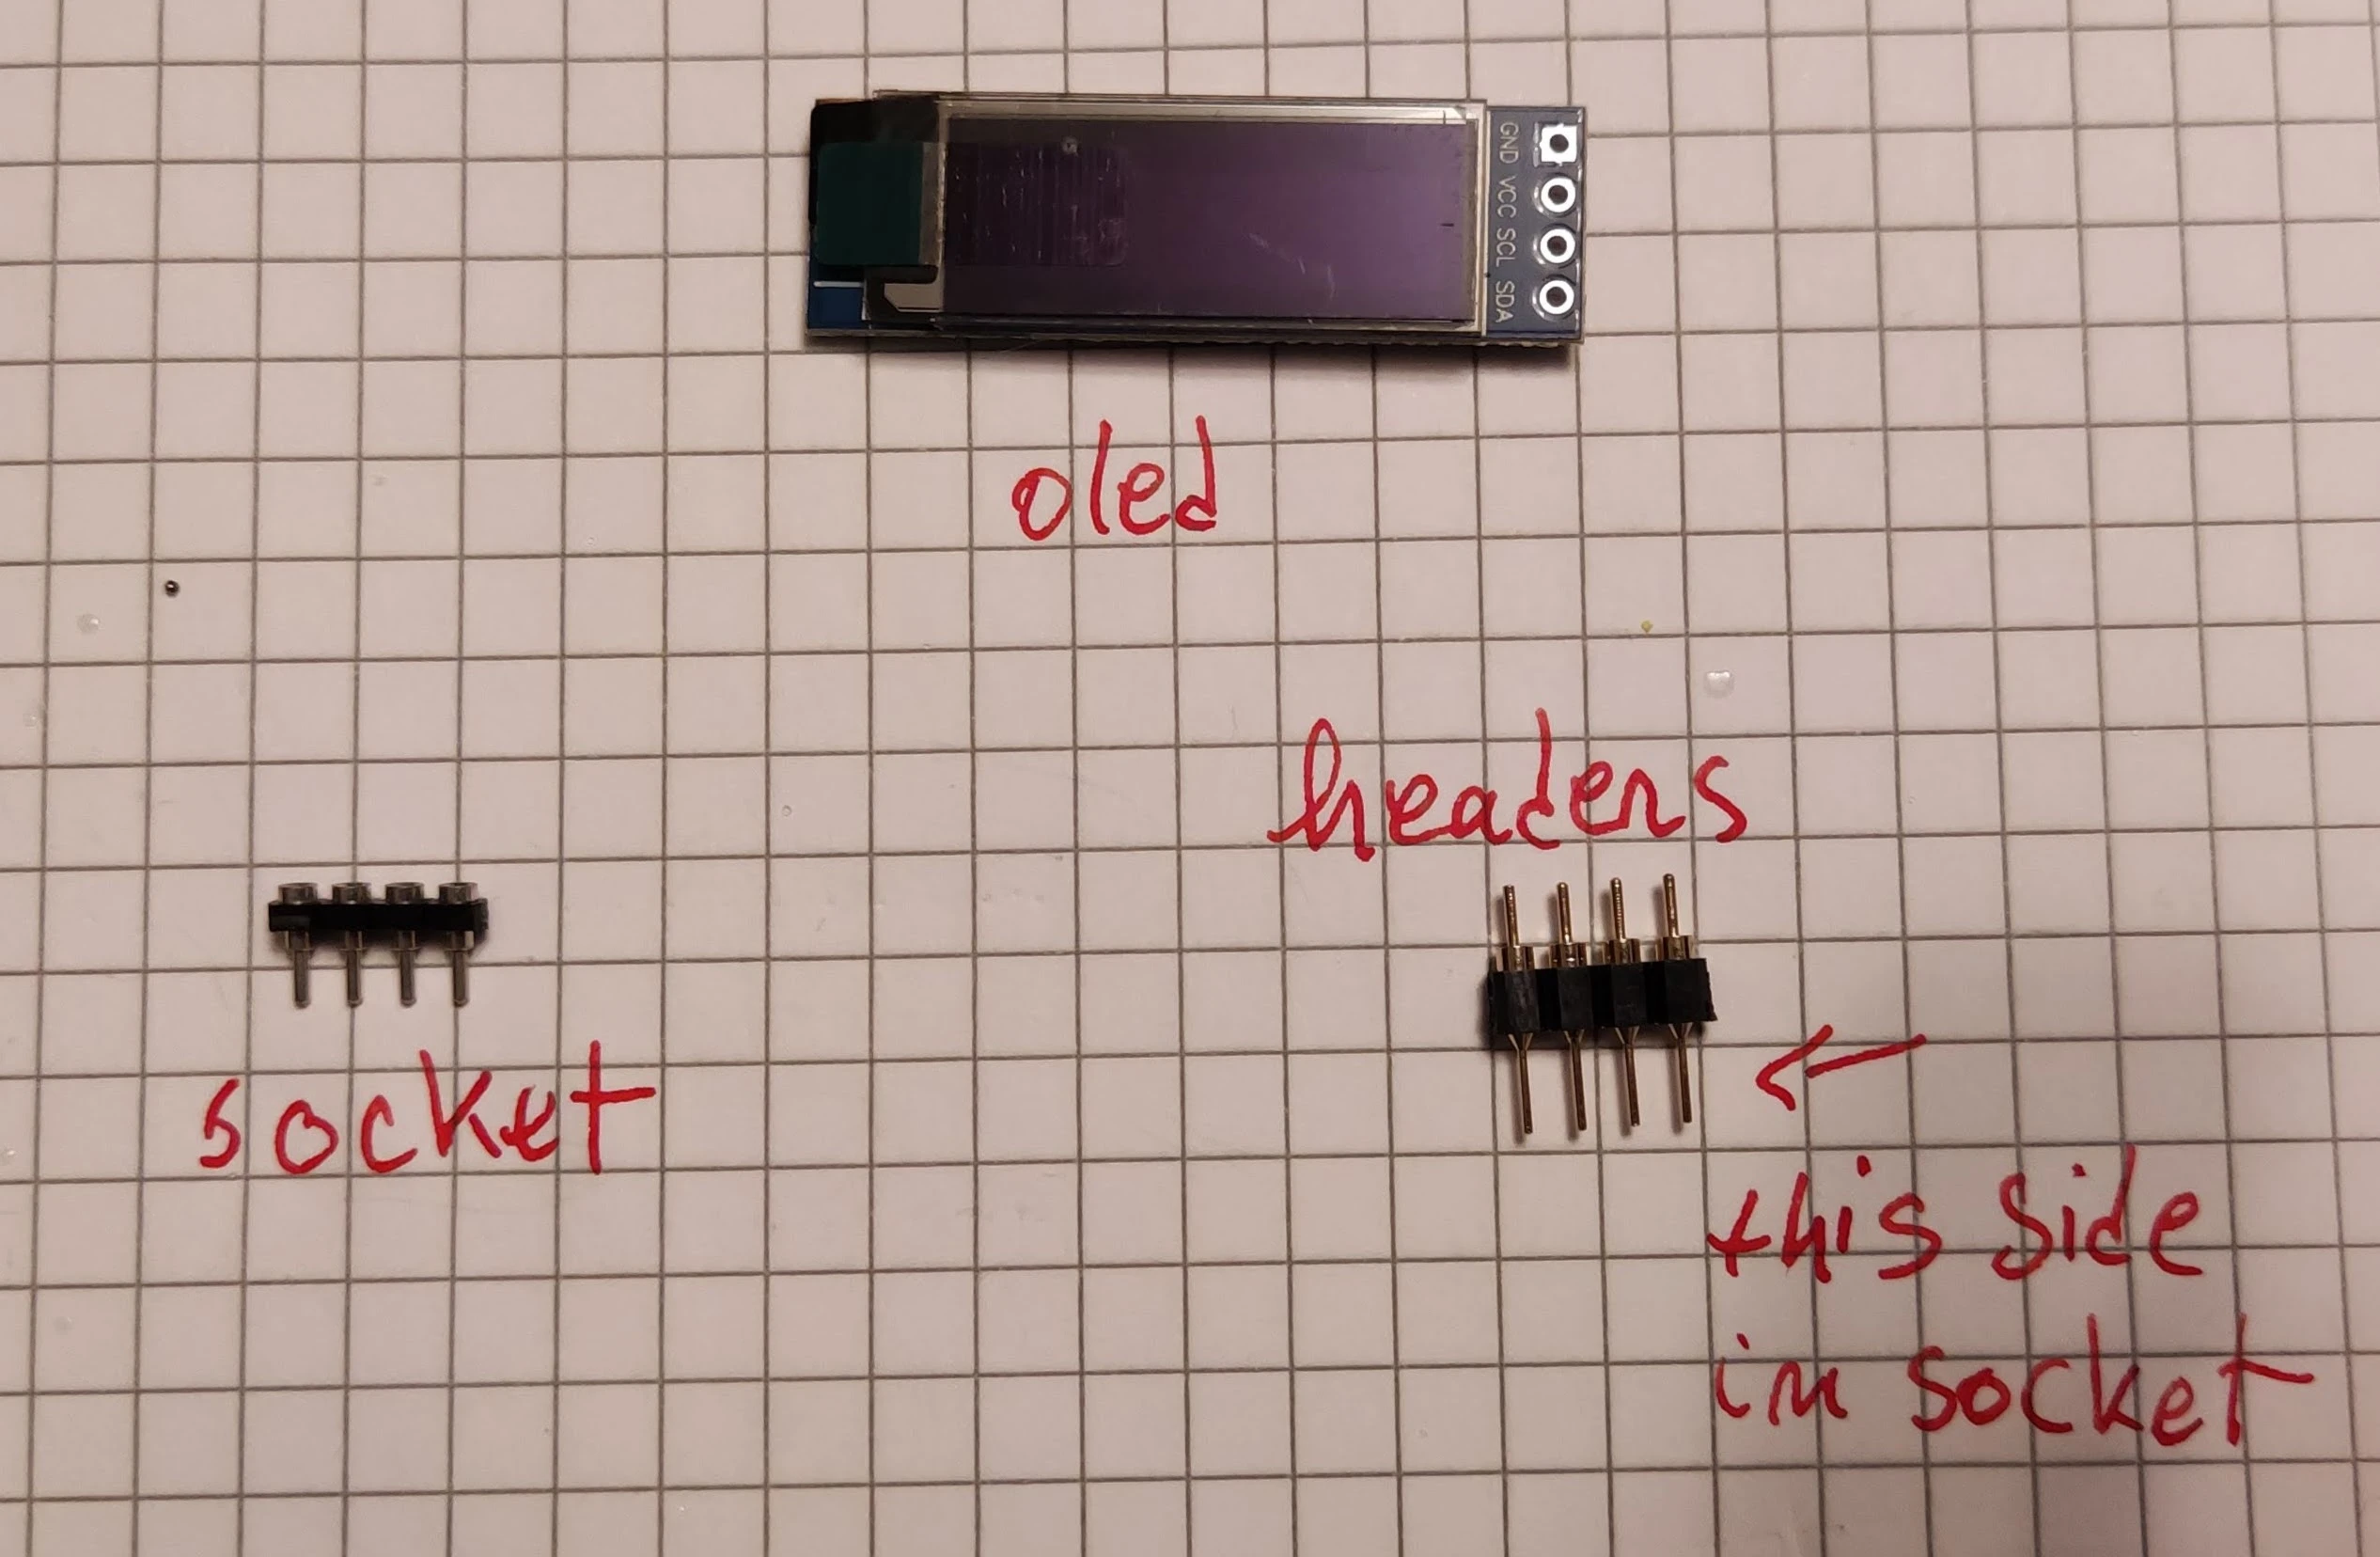 GND VCC SCL SDA
oled
headers
socket
this side
in socket